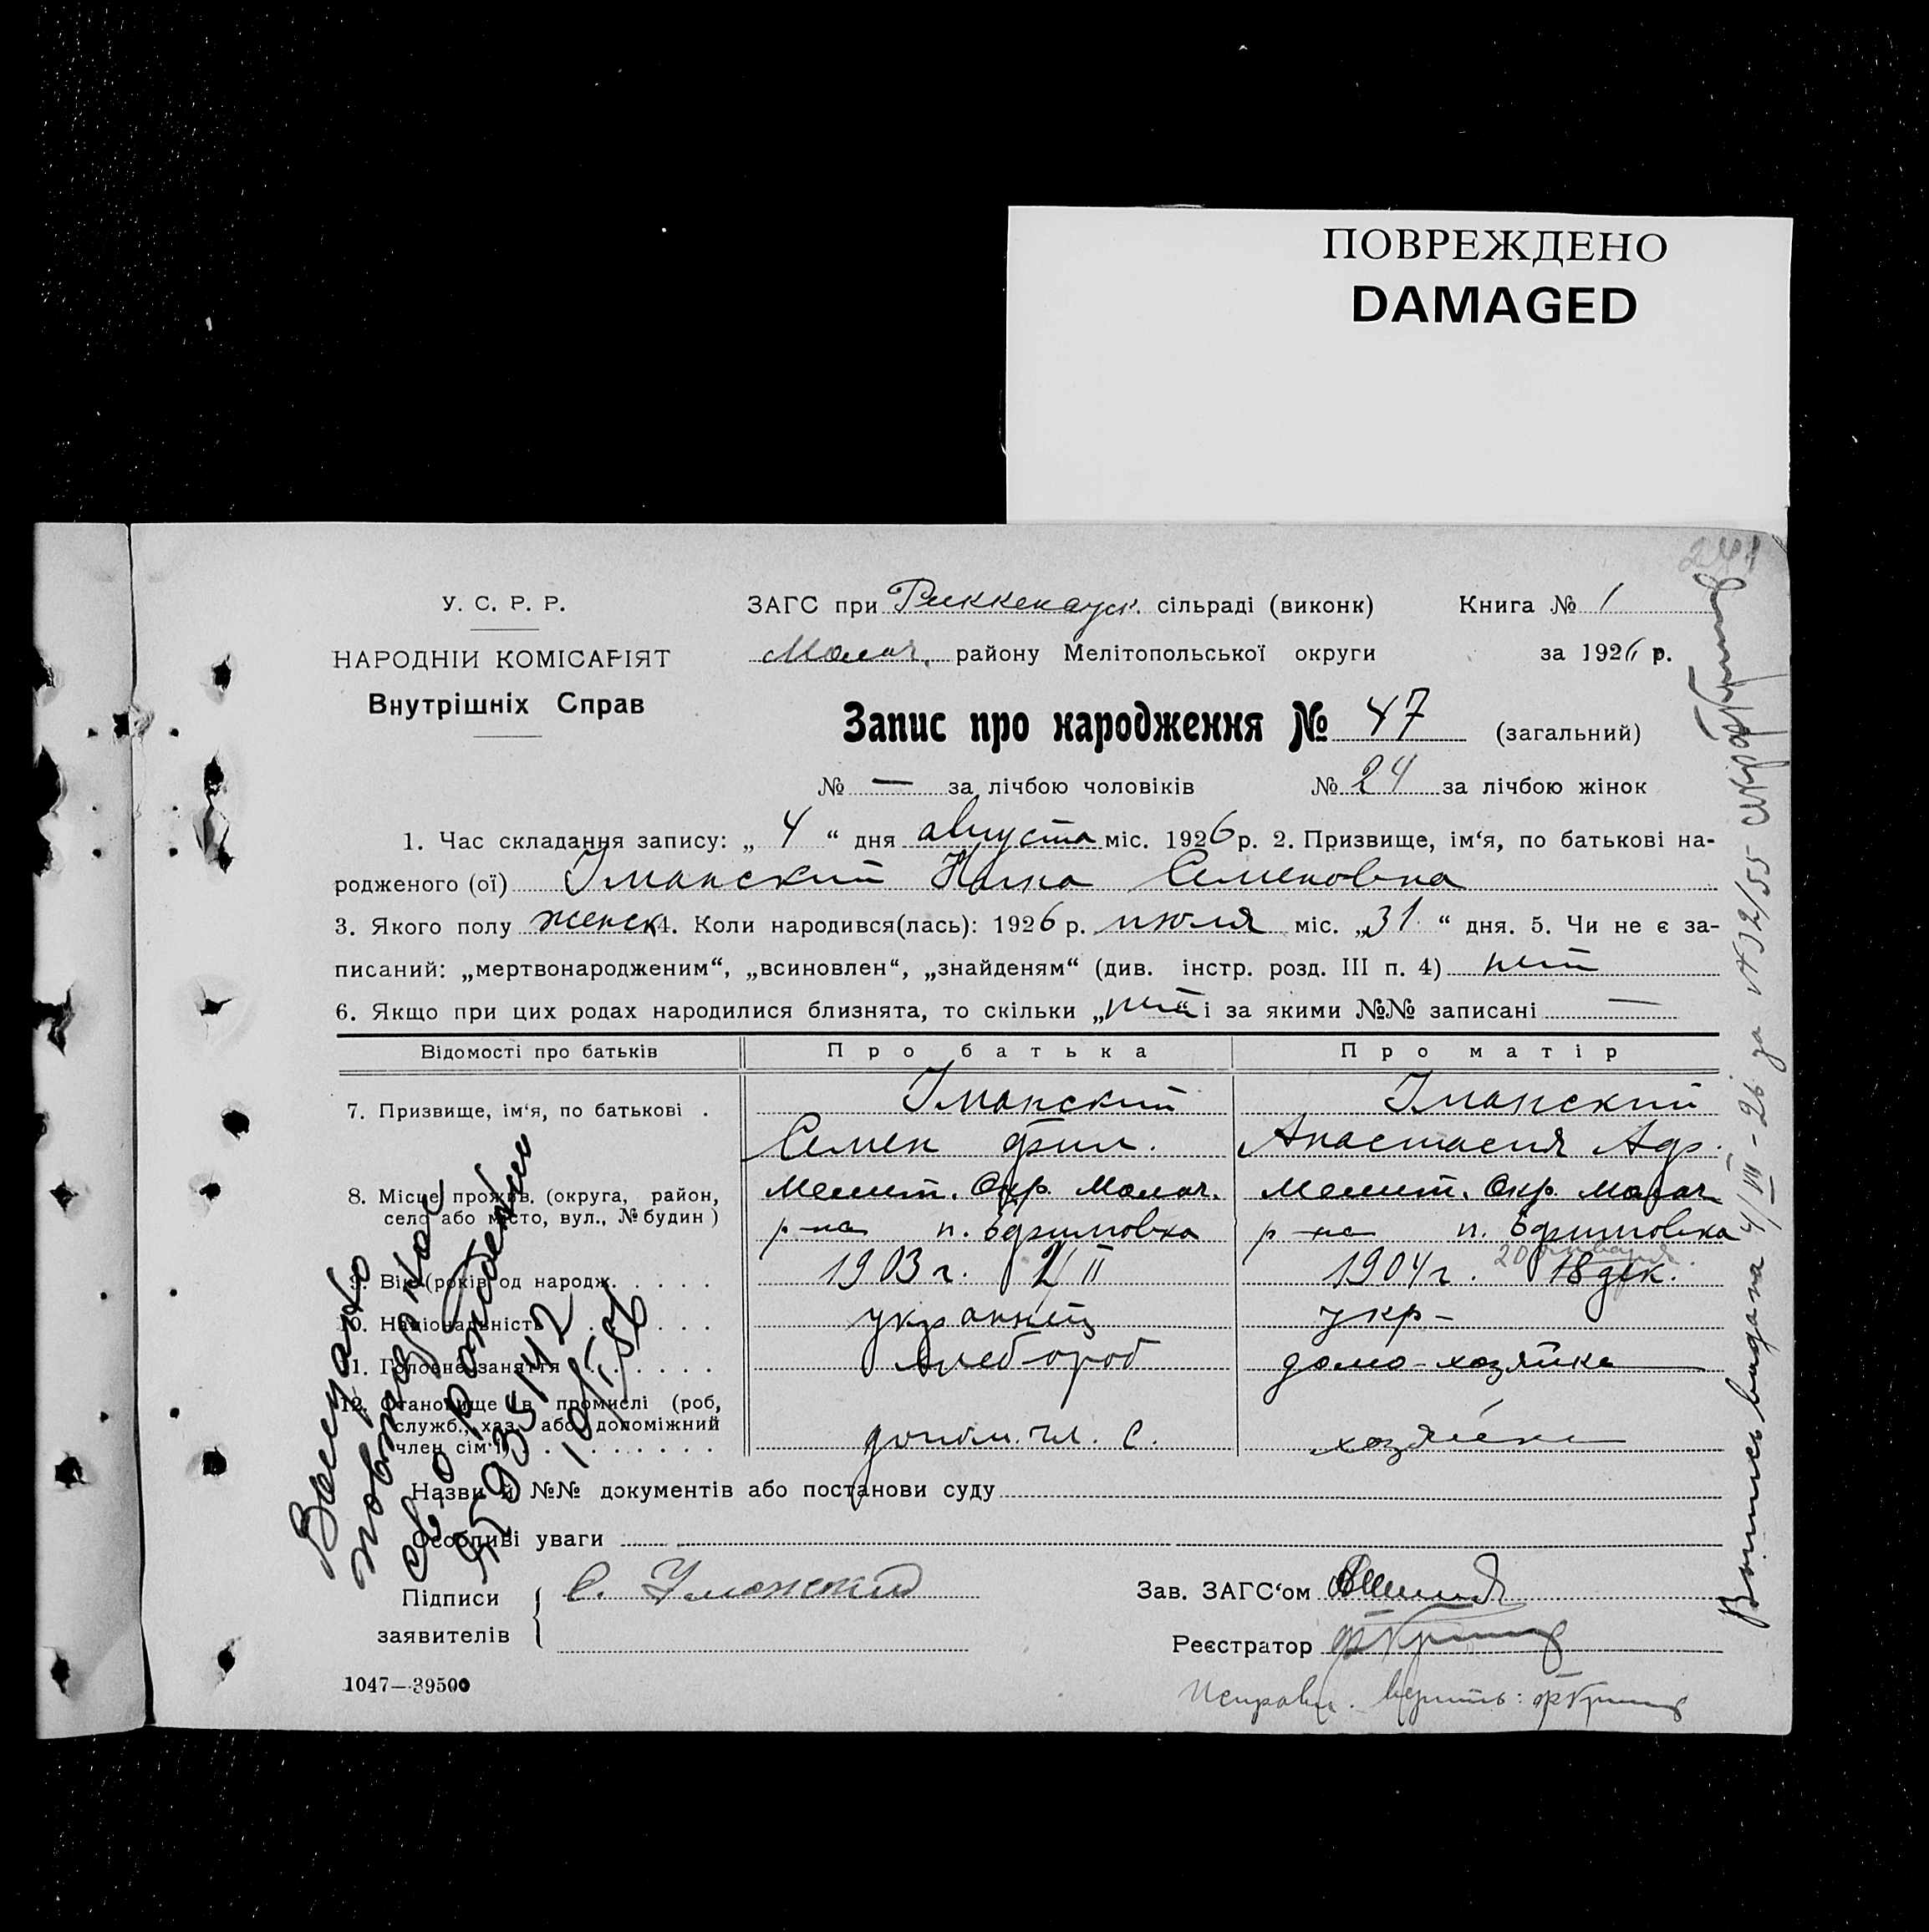 ПОВРЕЖДЕНО
DAMAGED
У. С. Р. Р.
НАРОДНІЙ КОМІСАРІЯТ
Внутрішніх Справ
ЗАГС при Риккенауск. сільраді (виконк) Книга № 1
Молоч. району Мелітопольської округи за 1926 р.
Запис про народження № 47 (загальний)
№ — за лічбою чоловіків № 24 за лічбою жінок
1. Час складання запису: „ 4 “ дня августа міс. 1926 р. 2. Призвище, ім‘я, по батькові на-
родженого (ої) Уманский Нина Семеновна
3. Якого полу женск 4. Коли народився(лась): 1926 р. июля міс. „31 “ дня. 5. Чи не є за-
писаний: „мертвонародженим“, „всиновлен“, „знайденям“ (див. інстр. розд. III п. 4) нет
6. Якщо при цих родах народилися близнята, то скільки „нет“ і за якими №№ записані —
Відомості про батьків Про батька Про матір
7. Призвище, ім‘я, по батькові . Уманский Уманский
Семен Фил. Анастасия
8. Місце прожив. (округа, район, село або місто, вул., № будин) Мелит. Окр. Молоч. Мелит. Окр. Молоч
р-на п. р-на п.
9. Вік (років од народж. . . . . . 1903 г. 2/II 1904 г. 20 января 18 дек.
10. Національність . . . . . украинец укр-
11. Головне заняття . . . . . хлебороб домо-хозяйка
12. Становище в промислі (роб, служб., хаз. або допоміжний член сім‘ї) . . . . . допом. чл. с. хозяйка
Назви й №№ документів або постанови суду
Особливі уваги
Підписи заявителів С. Уманский
Зав. ЗАГС‘ом
Реєстратор
1047—39500
Исправл. верить:
повторное
св. о рождении
Выпись выдана 4/III-26 за № 32/55